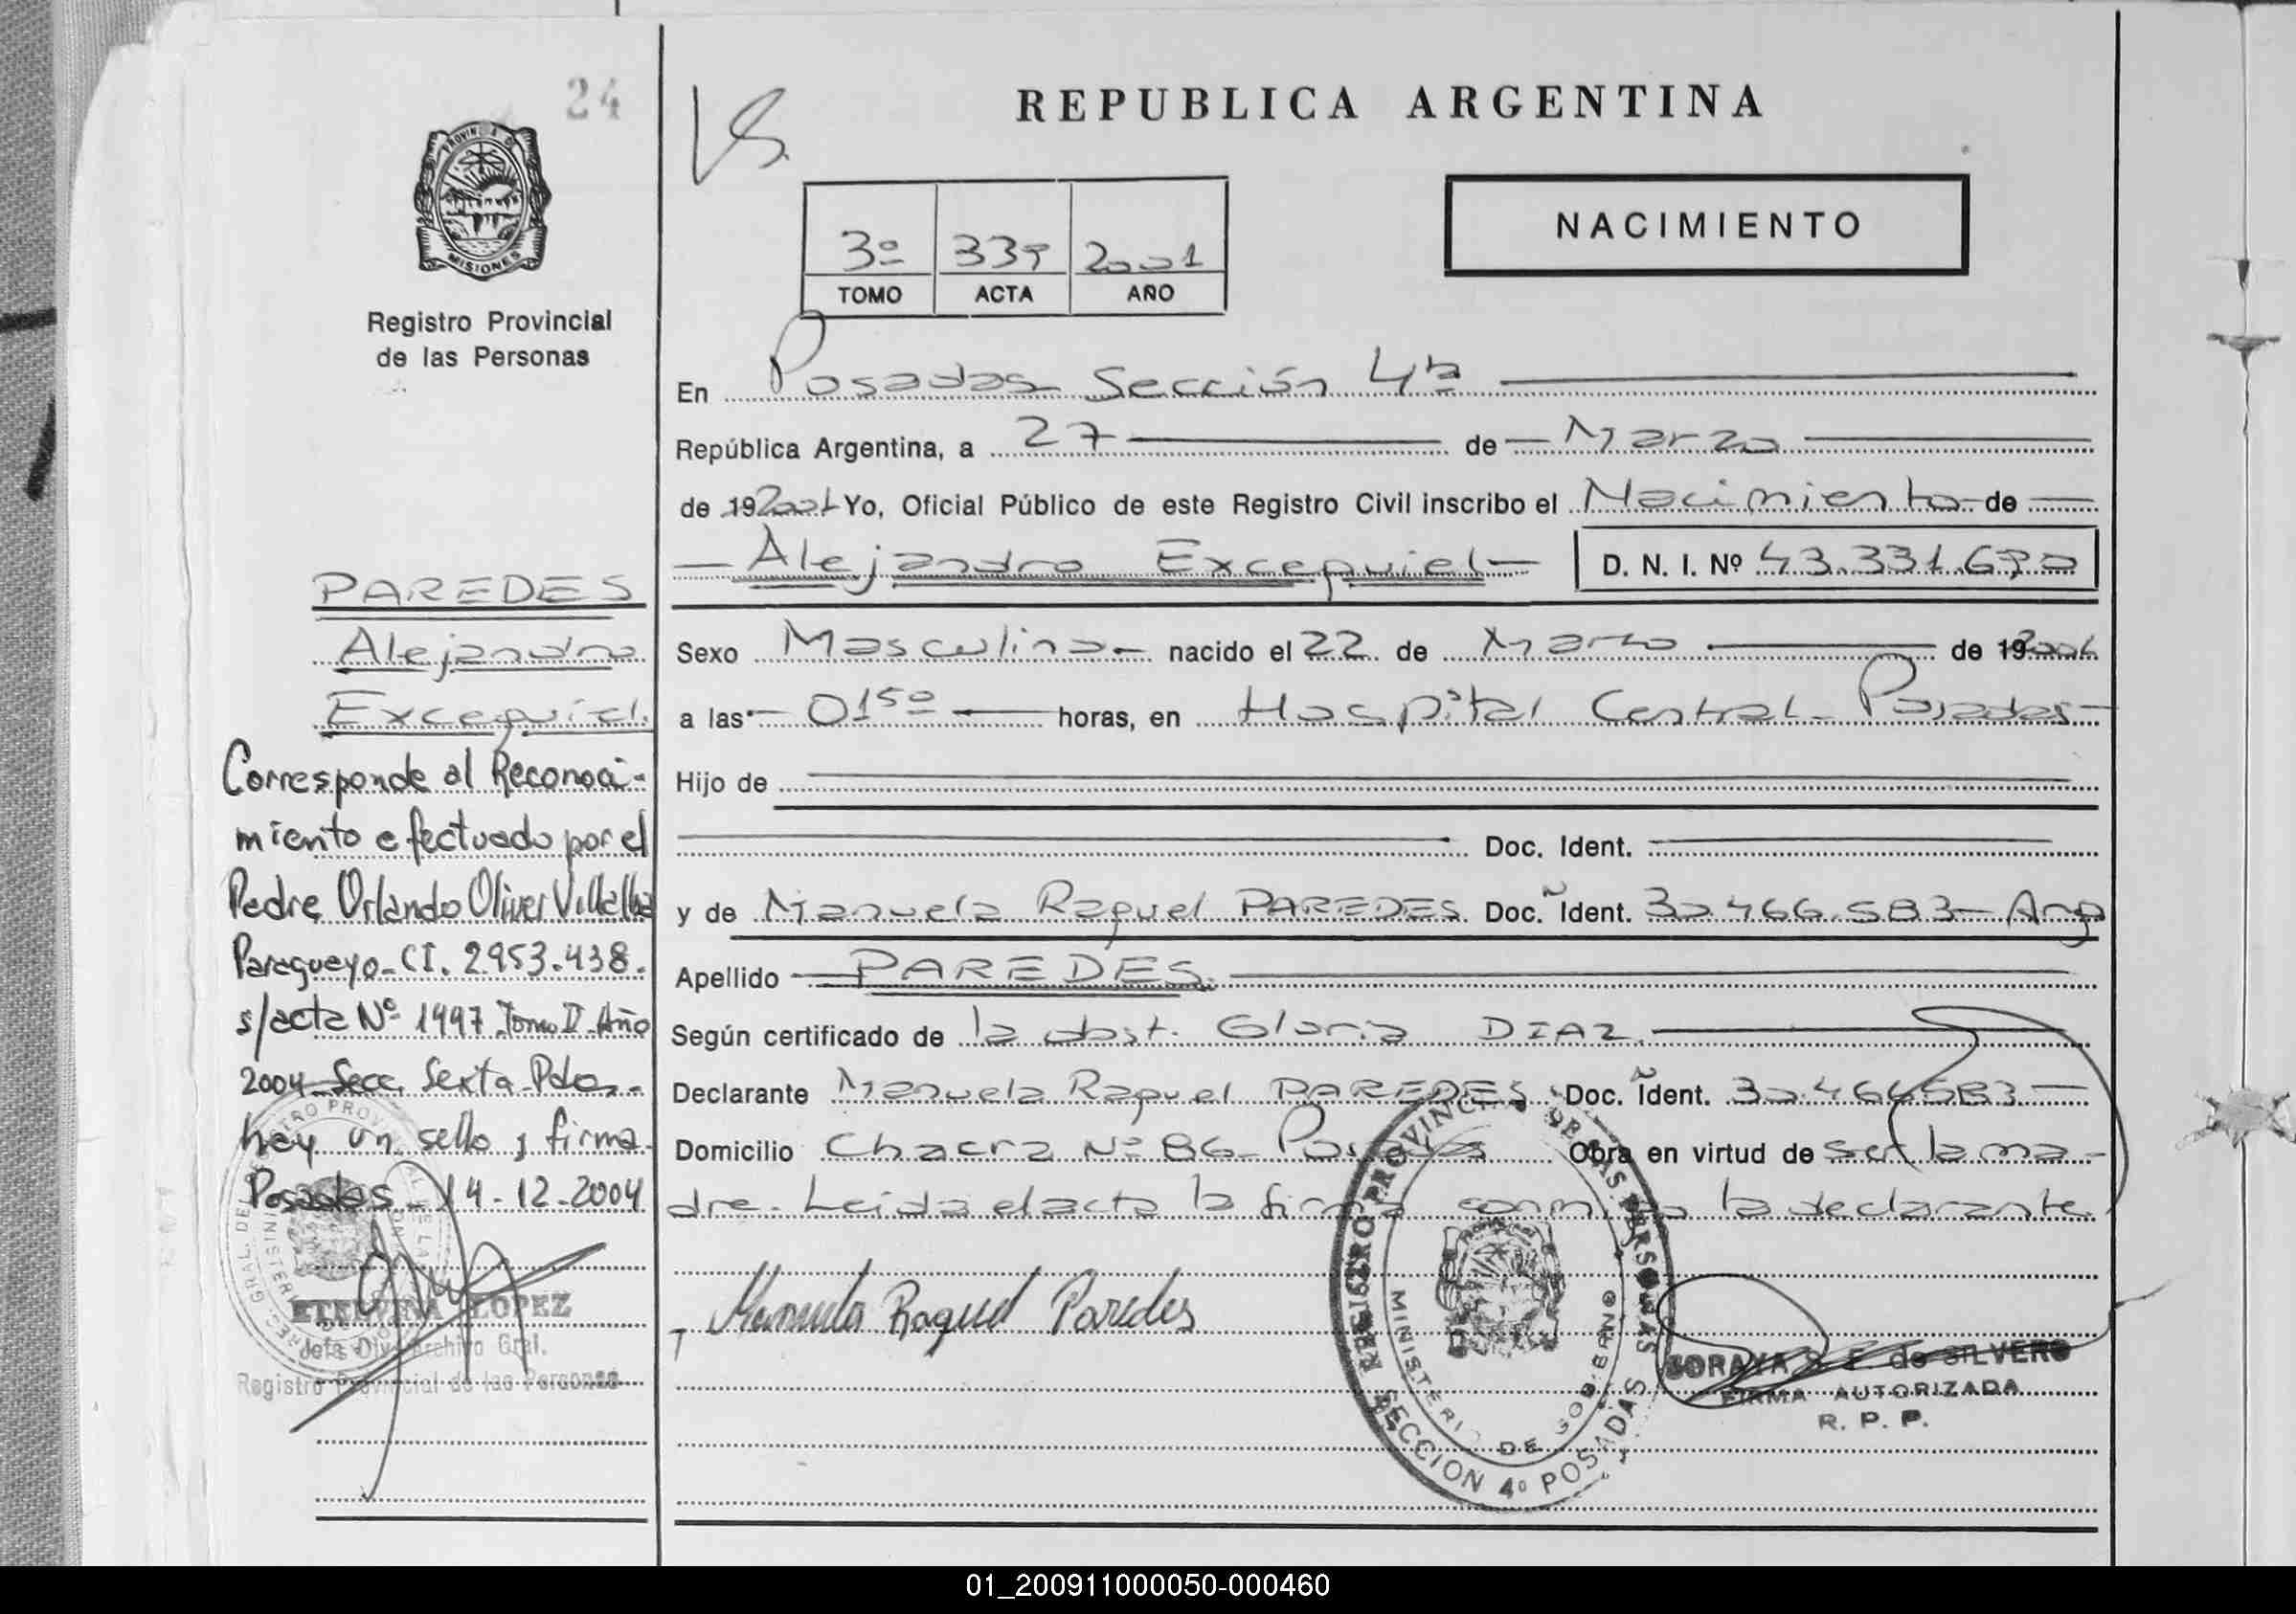 24
PROVINCIA DE
MISIONES
Registro Provincial
de las Personas
PAREDES
Alejandro
Excequiel.
Corresponde al Reconoci-
miento efectuado por el
Padre Orlando Oliver Villalba
Paraguayo - CI. 2953.438.
s/acta Nº 1997 Tomo II - Año
2004 Secc. Sexta - Pdas.
hay un sello y firma.
Posadas - 14-12-2004
ETELVINA LOPEZ
Jefa Div. Archivo Gral.
Registro Provincial de las Personas
REPUBLICA ARGENTINA
NACIMIENTO
3º 339 2001
TOMO ACTA AÑO
En Posadas Sección 4ta
República Argentina, a 27 de Marzo
de 192001 Yo, Oficial Público de este Registro Civil inscribo el Nacimiento de
Alejandro Excequiel D. N. I. Nº 43.331.690
Sexo Masculino - nacido el 22 de Marzo de 192001
a las 01⁵⁰ horas, en Hospital Central - Posadas -
Hijo de
Doc. Ident.
y de Manuela Raquel PAREDES Doc. Ident. 30.466.583 - Arg
Apellido PAREDES.
Según certificado de la obst. Gloria DIAZ.
Declarante Manuela Raquel PAREDES Doc. Ident. 30.466583 -
Domicilio Chacra Nº 86 - Posadas Obra en virtud de ser la ma-
dre - Leida el acta la firma conmigo la declarante.
Manuela Raquel Paredes
REGISTRO PROVINCIAL DE LAS PERSONAS
MINISTERIO DE GOBIERNO
SECCION 4º POSADAS
SORAYA S. E. de SILVERO
FIRMA AUTORIZADA
R. P. P.
01_200911000050-000460